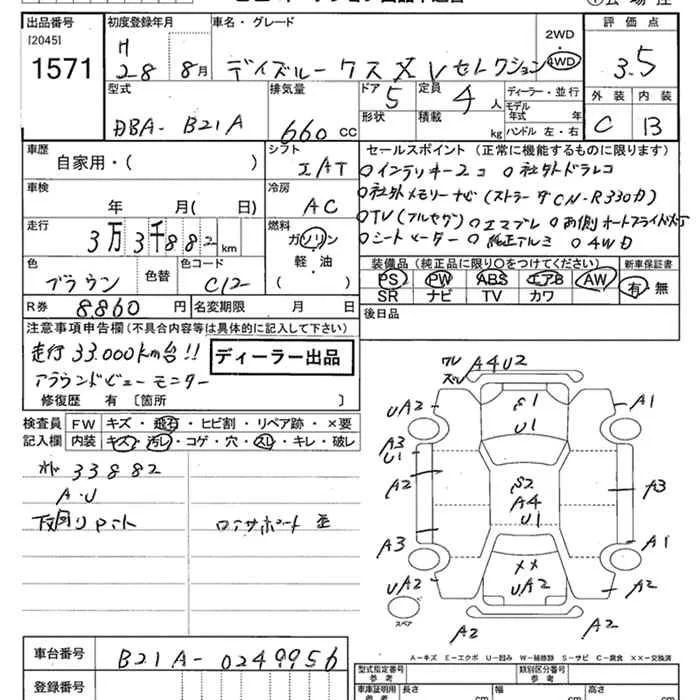 出品番号
初度登録年月
車名・グレード
評価点
[2045]
1571
H
28 8月
デイズルークス X Vセレクション
2WD
4WD
3.5
型式
排気量
ドア 5
定員 4人
ディーラー・並行
外装 内装
DBA- B21A
660 CC
形状
積載 kg
モデル年式 年
ハンドル 左・右
C B
車歴
自家用・( )
シフト
IAT
セールスポイント (正常に機能するものに限ります)
○インテリキー2コ ○社外ドラレコ
車検
年 月( 日)
冷房
AC
○社外メモリーナビ(ストラーダCN-R330カ)
○TV(フルセグ) ○エマブレ ○両側オートスライドドア
○シートヒーター ○純正アルミ ○4WD
走行
3万3千882km
燃料
ガソリン
・
軽・油
( )
色
ブラウン
色替
色コード
C12
装備品(純正品に限り○をつけてください)
新車保証書
PS PW ABS エアB AW
有・無
SR ナビ TV カワ
R券 8860円
名変期限 月 日
後日品
注意事項申告欄(不具合内容等は具体的に記入して下さい)
走行33.000km台!!
ディーラー出品
アラウンドビューモニター
修復歴 有〔箇所 〕
検査員
記入欄
FW キズ・飛石・ヒビ割・リペア跡・×要
内装 キズ・汚レ・コゲ・穴・スレ・キレ・破レ
33882
A・U
下廻りPaint
ロアサポート歪
ワレ
ズレ
A4U2
UA2
S1
U1
A1
A3
U1
A2
S2
A4
U1
A3
A3
A1
××
UA2
UA2
A2
スペア
A2
A2
A-キズ E-エクボ U-凹み W-補修跡 S-サビ C-腐食 ××-交換済
車台番号
B21A-0249956
登録番号
型式指定番号
参考
類別区分番号
参考
車庫証明用
参考
長さ cm
幅 cm
高さ cm